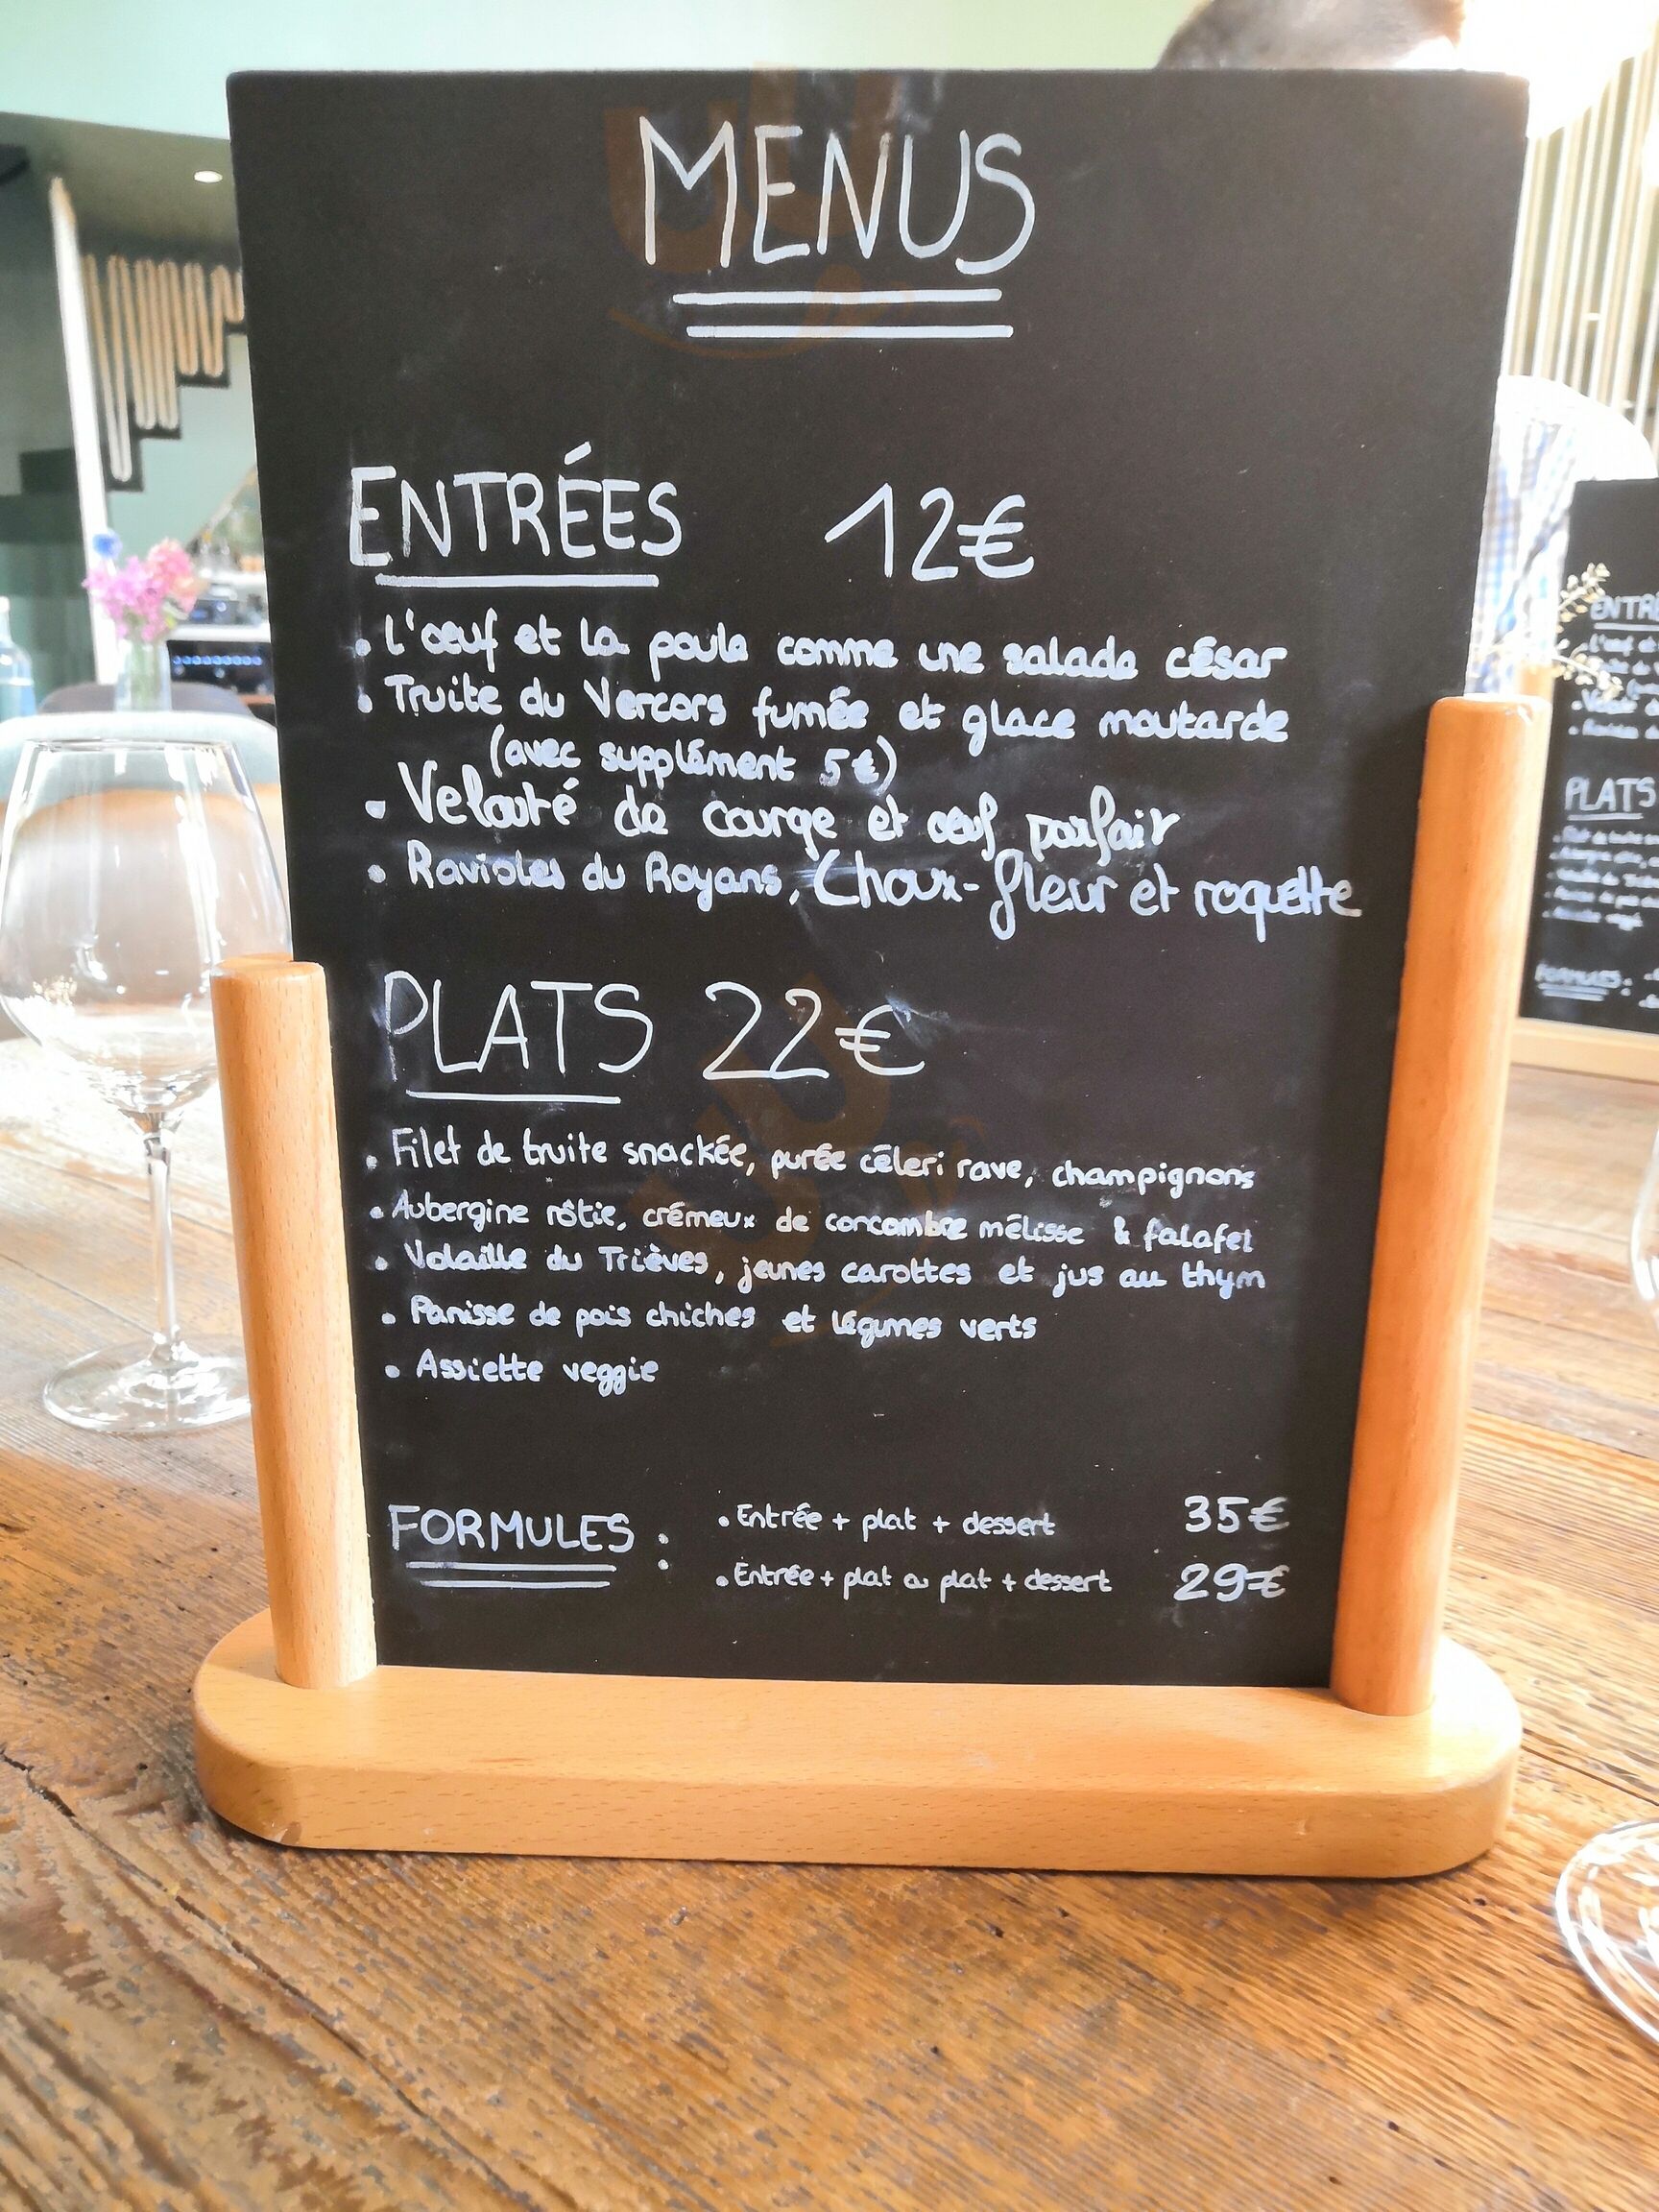 MENUS
ENTRÉES 12€
• L'œuf et la poule comme une salade césar
• Truite du Vercors fumée et glace moutarde
(avec supplément 5€)
• Velouté de courge et œuf parfait
• Ravioles du Royans, Choux-fleur et roquette
PLATS 22€
• Filet de truite snackée, purée céleri rave, champignons
• Aubergine rôtie, crémeux de concombre mélisse & falafel
• Volaille du Trièves, jeunes carottes et jus au thym
• Panisse de pois chiches et légumes verts
• Assiette veggie
FORMULES : • Entrée + plat + dessert 35€
• Entrée + plat ou plat + dessert 29€
ENTRÉ
L'œuf et
PLATS
FORMULES :